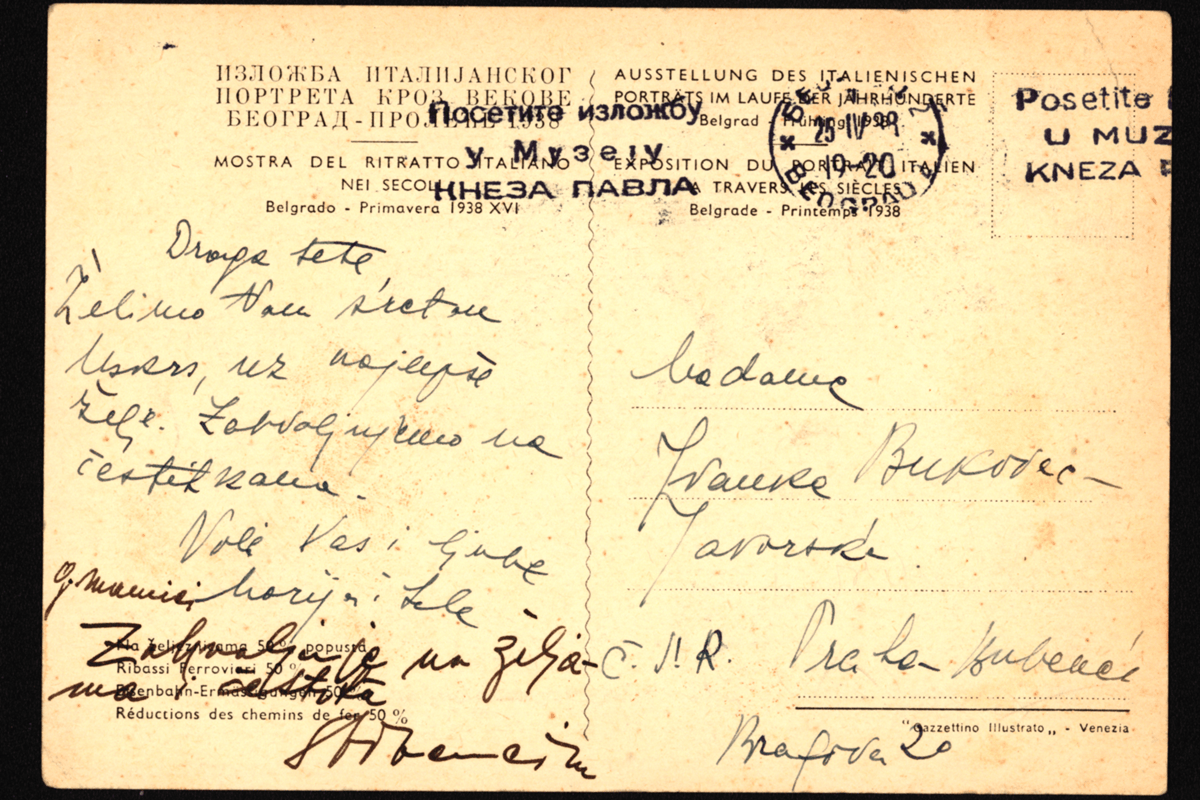 ИЗЛОЖБА ИТАЛИЈАНСКОГ
ПОРТРЕТА КРОЗ ВЕКОВЕ
БЕОГРАД-ПРОЛЕЋЕ 1938
MOSTRA DEL RITRATTO ITALIANO
NEI SECOLI
Belgrado - Primavera 1938 XVI
AUSSTELLUNG DES ITALIENISCHEN
PORTRÄTS IM LAUFE DER JAHRHUNDERTE
Belgrad - Frühling 1938
EXPOSITION DU PORTRAIT ITALIEN
A TRAVERS LES SIÈCLES
Belgrade - Printemps 1938
Посетите изложбу
у Музеју
КНЕЗА ПАВЛА
25 IV
19-20
BEOGRAD
Posetite
U MUZ
KNEZA
Draga tete,
Želimo Vam sretan
Uskrs, uz najlepše
želje. Zahvaljujemo na
čestitkama.
Voli Vas i ljube
Marija i
Zahvaljuje na želja-
ma i čestitka
Na željeznicama 50 % popusta
Ribassi Ferroviari 50 %
Eisenbahn-Ermässigungen 50 %
Réductions des chemins de fer 50 %
Madame
Ivanka Bukovec-
Javorska
Č. S. R. Praha-Bubeneč
20
"Gazzettino Illustrato„ - Venezia